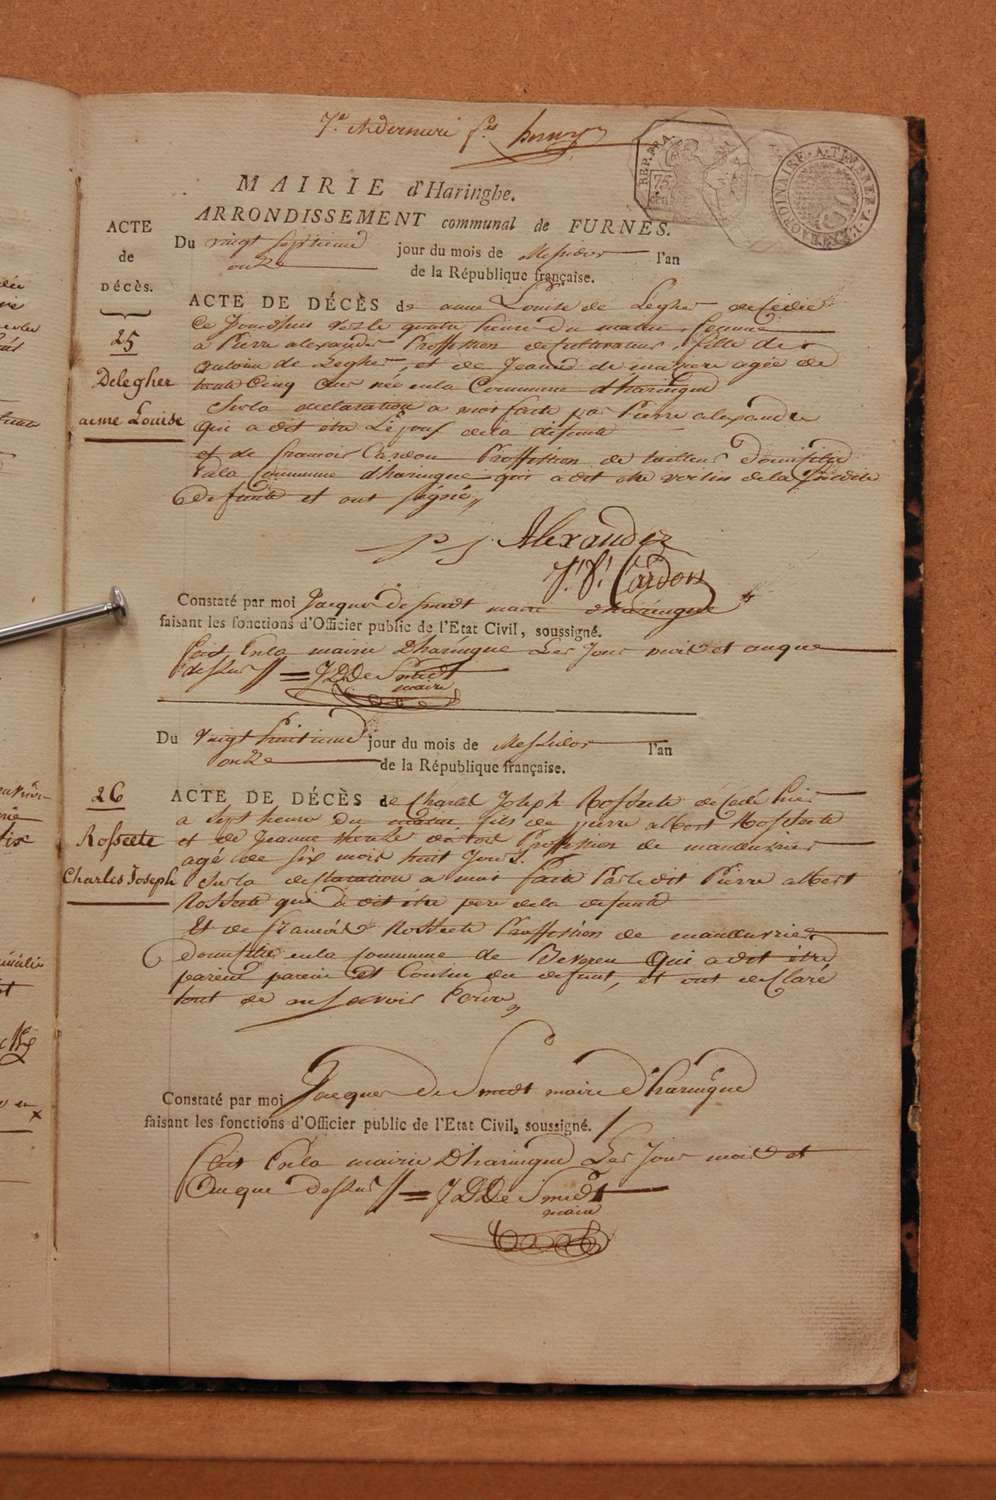 7.e et dernier f.e
MAIRIE d'Haringhe.
ARRONDISSEMENT communal de FURNES.
ACTE
de
DÉCÈS.
25
Delegher
anne Louise
Du vingt septieme jour du mois de Messidor l'an
onze de la République française.
ACTE DE DÉCÈS de anne Louise de Legher decedée
Ce Jourdhui vers le quatre heure du matin femme
a Pierre alexander Proffission de Cultivateur, fille de
antoine de Legher, et de Jeanne de agée de
trente Cinq ans née enla Commune dharingue
Sur la declaration a moi faite par Pierre alexander
qui a dit etre L'epous de la defunte
et de francois Cardon Proffission de tailleur domicilié
enla Commune dharingue qui a dit etre voisin de la susdite
defunte et ont signé
P J Alexander
F: F: Cardon
Constaté par moi Jacque desmedt maire dharingue
faisant les fonctions d'Officier public de l'Etat Civil, soussigné.
fait Enla mairie Dharingue Les Jour mois et anque
dessus // = J D De Smedt
maire
26
Rosseete
Charles Joseph
Du vingt huitieme jour du mois de Messidor l'an
onze de la République française.
ACTE DE DÉCÈS de Charles Joseph Rosseete décedé hier
a sept heure du fils de pierre albert Rosseete
et de Jeanne Proffission de manœuvrier
agé de six mois huit Jours.
Sur la declaration a moi faite Par le dit Pierre albert
Rosseete qui a dit être pere de la defunte
Et de francois Rosseete Proffission de manœuvrier
Domicilié enla commune de qui a dit être
parent et Cousin du defunt, et ont desclaré
tout de ne savoir Ecrire
Constaté par moi Jacques de Smedt maire d'haringue
faisant les fonctions d'Officier public de l'Etat Civil, soussigné.
fait Enla mairie Dharingue Les Jour mois et
Anque dessus // = J D De Smedt
maire